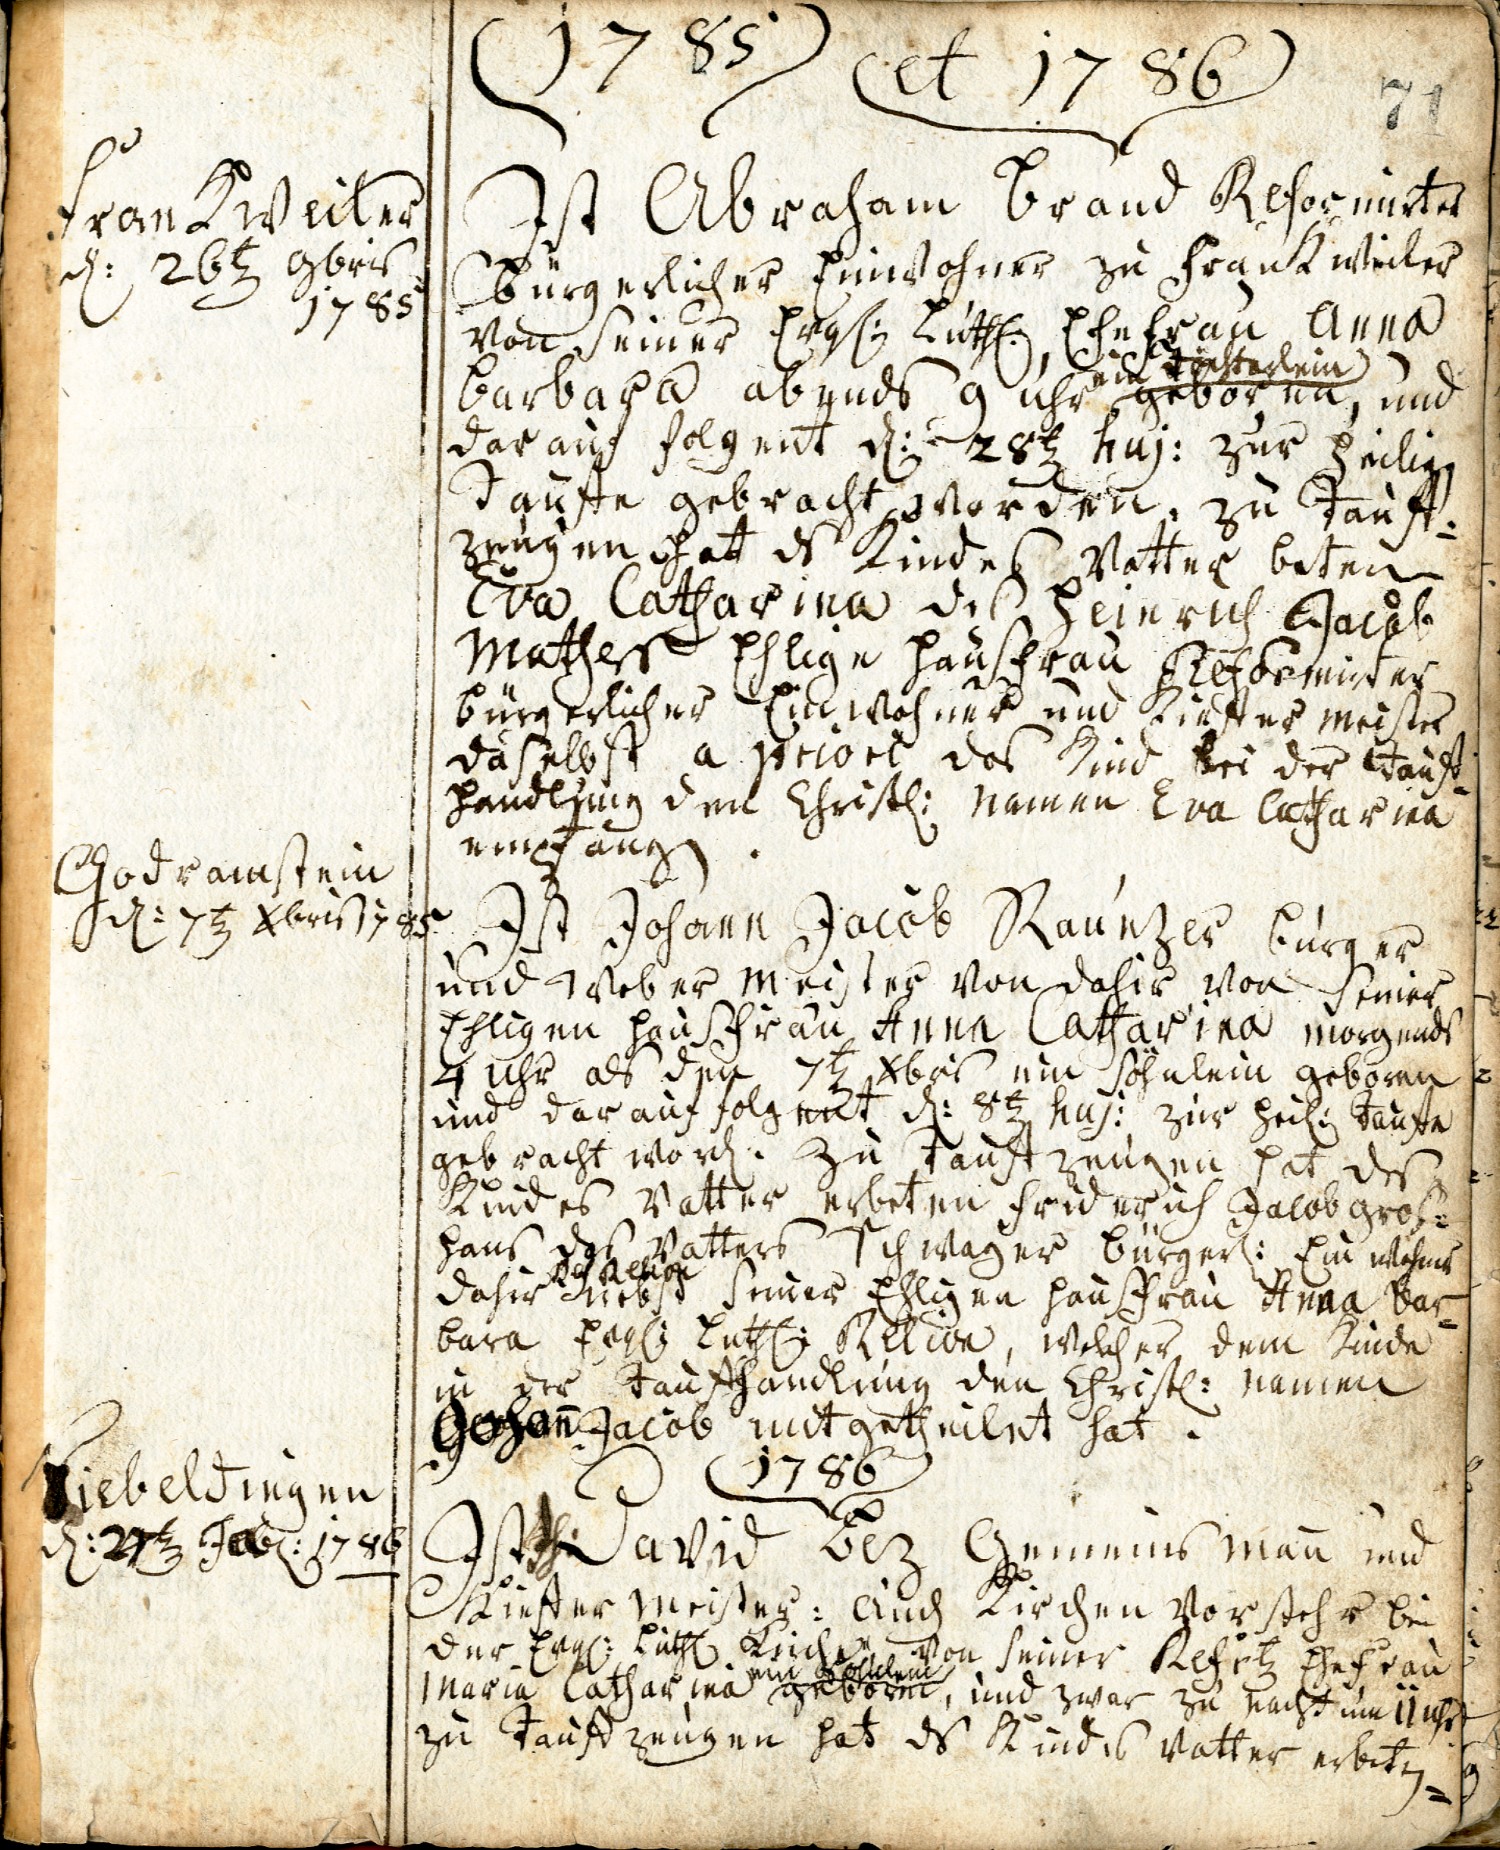 (1785) (et 1786)
71
Frankweiler
d: 26t 9bris
1785
Ist Abraham Brand Reformirter
Bürgerlicher Einwohner zu Frankweiler
von seiner Evgl: Luth: Ehefrau Anna
Barbara abends 9 uhr ein Töchterlein geboren, und
darauf folgent d: 28t huj: zur heilig
Tauffe gebracht worden. zu Tauff=
zeugen hat ds Kindes Vatter beten
Eva Catharina des Heinrich Jacob
Mathess Ehlige hausfrau Reformirter
bürgerlicher Einwohner und Kieffer meister
daselbst a priori das Kind bei der Tauf=
handlung den Christl: Namen Eva Catharina
empfang.
Godramstein
d: 7t Xbris 1785
Ist Johann Jacob Raunzer burger
und Weber Meister von dahir von seiner
Ehligen hausfrau Anna Catharina morgends
4 uhr als den 7t Xbris ein söhnlein geboren
und darauf folgent d: 8t huj: zur heilig Tauffe
gebracht word. Zu Tauffzeugen hat des
Kindes Vatter erbeten Friderich Jacob Gros=
hans des Vatters Schwager bürgerl: Einwohner
dahir nebst seiner Ehligen hausfrau Anna Bar=
bara Evgl: Luth: Relion, welcher dem Kinde
in der Taufhandlung den Christl: Namen
Johann Jacob mitgetheilet hat.
(1786)
Siebeldingen
d: 27t Feb: 1786
Ist David Bez Gemeinsmann und
Kieffer Meister: auch Kirchen Vorsteher bei
der Evgl: Luth Kirche von seiner Refrtz Ehefrau
Maria Catharina ein Söhnlein geboren, und zwar zu nacht um 11 uhr
zu Tauffzeugen hat ds Kindes Vatter erbeten=